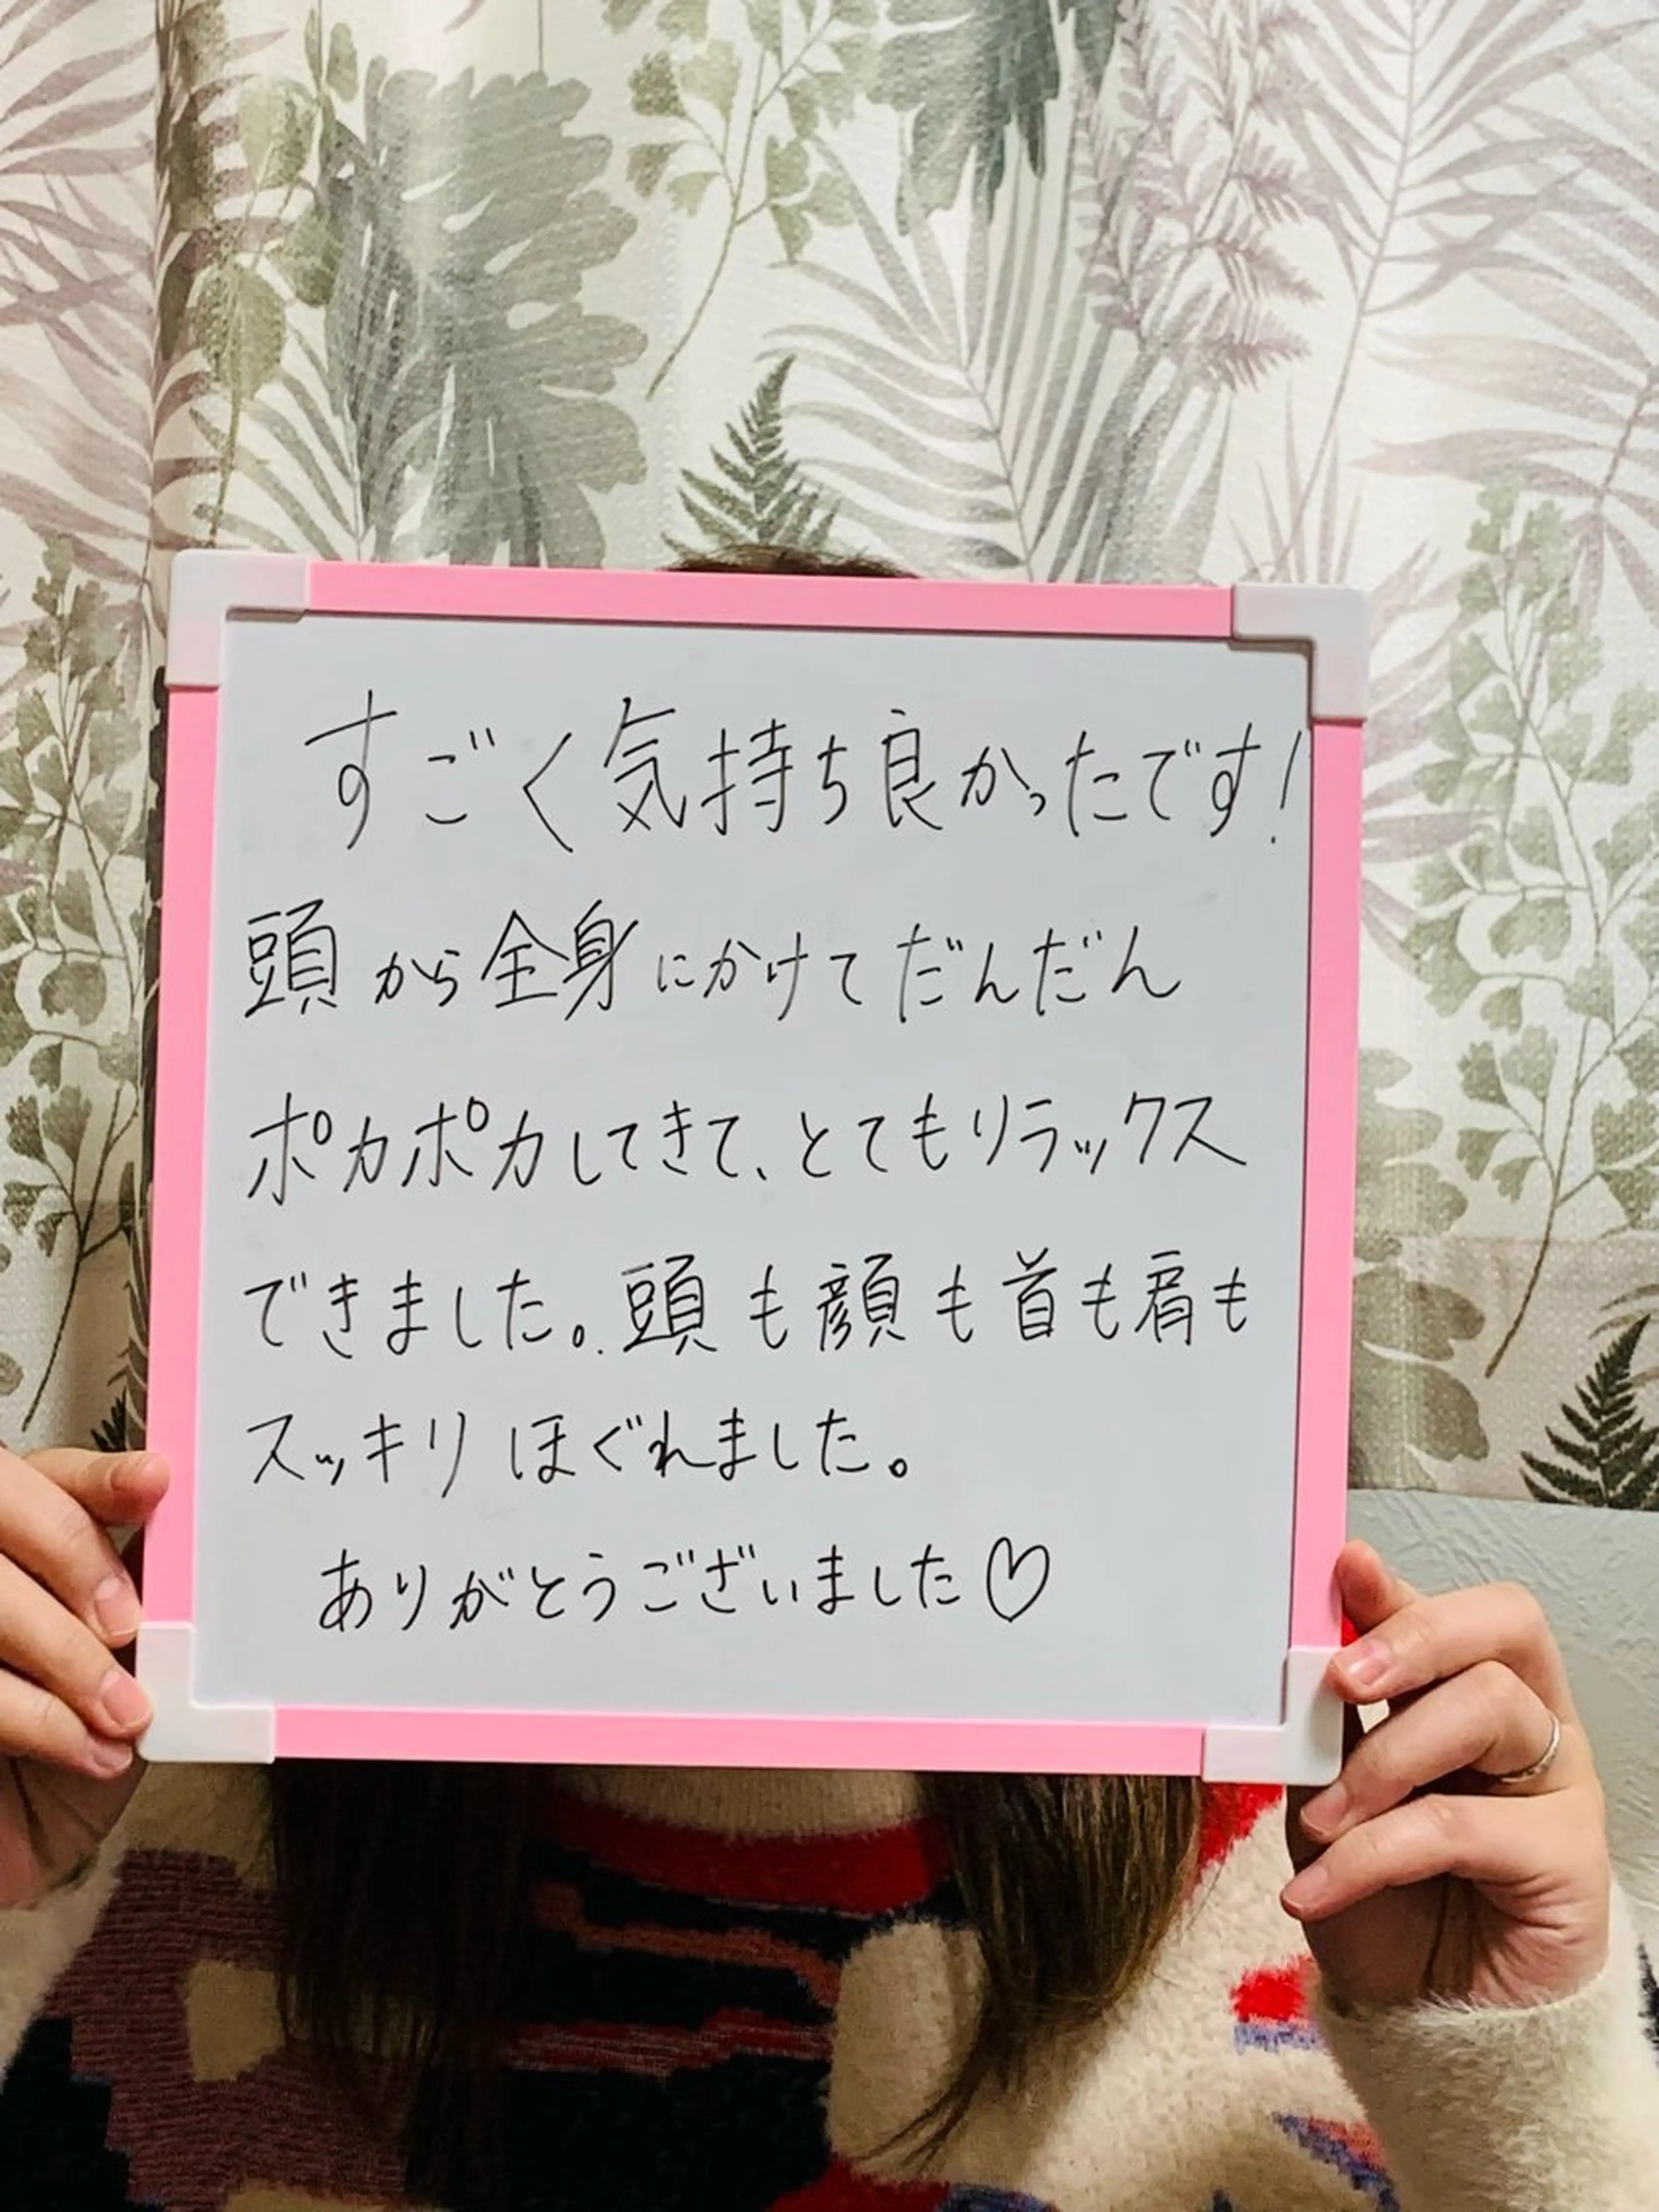 すごく気持ち良かったです!
頭から全身にかけてだんだん
ポカポカしてきて、とてもリラックス
できました。頭も顔も首も肩も
スッキリほぐれました。
ありがとうございました♡